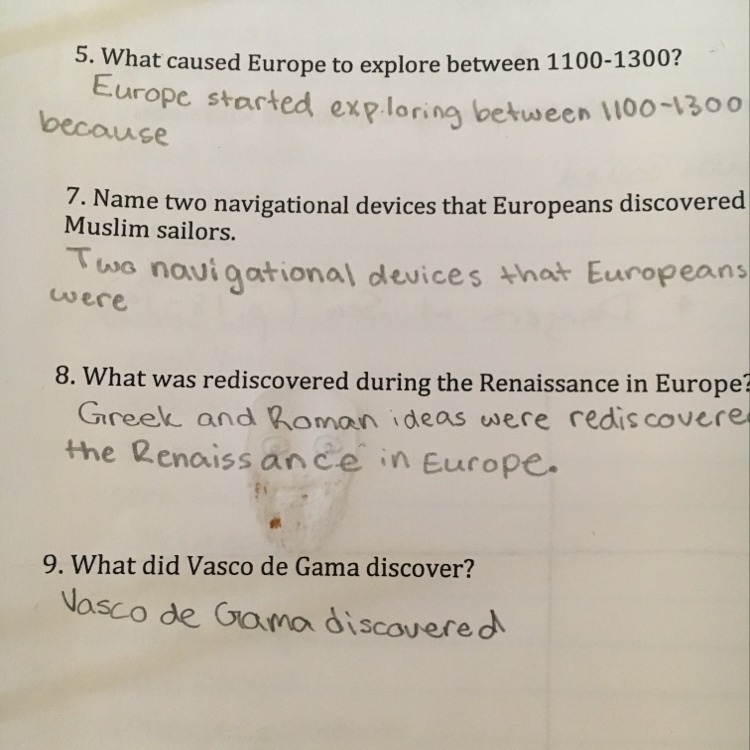 5. What caused Europe to explore between 1100-1300?
Europe started exploring between 1100-1300
because
7. Name two navigational devices that Europeans discovered
Muslim sailors.
Two navigational devices that Europeans
were
8. What was rediscovered during the Renaissance in Europe?
Greek and Roman ideas were rediscovere
the Renaissance in Europe.
9. What did Vasco de Gama discover?
Vasco de Gama discovered